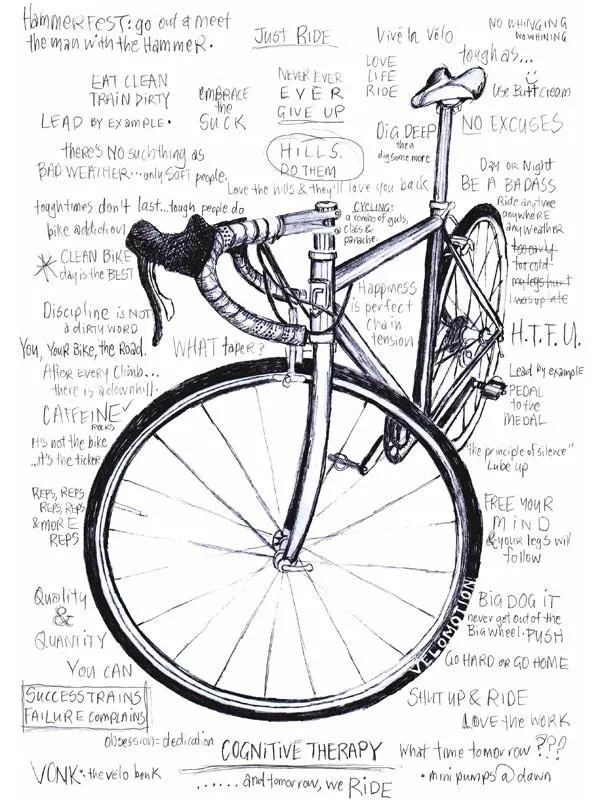 HammerFest: go out & meet
the man with the Hammer.
JUST RIDE
Vive In Vélo
NO WHINGING
NOWHINING
LOVE
LIFE
RIDE
tough as...
Use Butt Cream
EAT CLEAN
TRAIN DIRTY
EMBRACE
the
SUCK
NEVER EVER
EVER
GIVE UP
LEAD BY EXAMPLE.
DIG DEEP
then
dig some more
NO EXCUSES
there's NO such thing as
BAD WEATHER...only SOFT people.
HILLS.
DO THEM
Love the hills & they'll love you back
Day or Night
BE A BADASS
Ride anytime
anywhere
any weather
too early
too cold
my legs hurt
I was up late
tough times don't last...tough people do
CYCLING:
a combo of guts,
class &
panache.
bike addiction
CLEAN BIKE
day is the BEST
Discipline is NOT
a DIRTY WORD
Happiness
is perfect
chain
tension
H.T.F.U.
You, Your Bike, the Road.
WHAT taper?
After every climb...
there is a downhill.
Lead by example
PEDAL
to the
MEDAL
CAFFEINE
ROCKS
It's not the bike
...it's the ticker
"the principle of silence"
Lube up
REPS, REPS
REPS, REPS
& MORE
REPS
FREE YOUR
MIND
& your legs will
follow
Quality
&
QUANTITY
BIG DOG IT
never get out of the
Big Wheel. PUSH
VELOMOTION
YOU CAN
GO HARD OR GO HOME
SUCCESS TRAINS
FAILURE COMPLAINS
SHUT UP & RIDE
LOVE the WORK
obsession = dedication
COGNITIVE THERAPY
What time tomorrow ???
VONK: the velo bonk
......and tomorrow, we RIDE
• mini pumps @ dawn